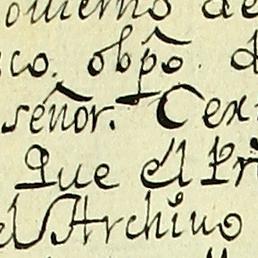 ouierno de
sco. obpõ. d
señor. Cex
Que el Pri
el Archiuo